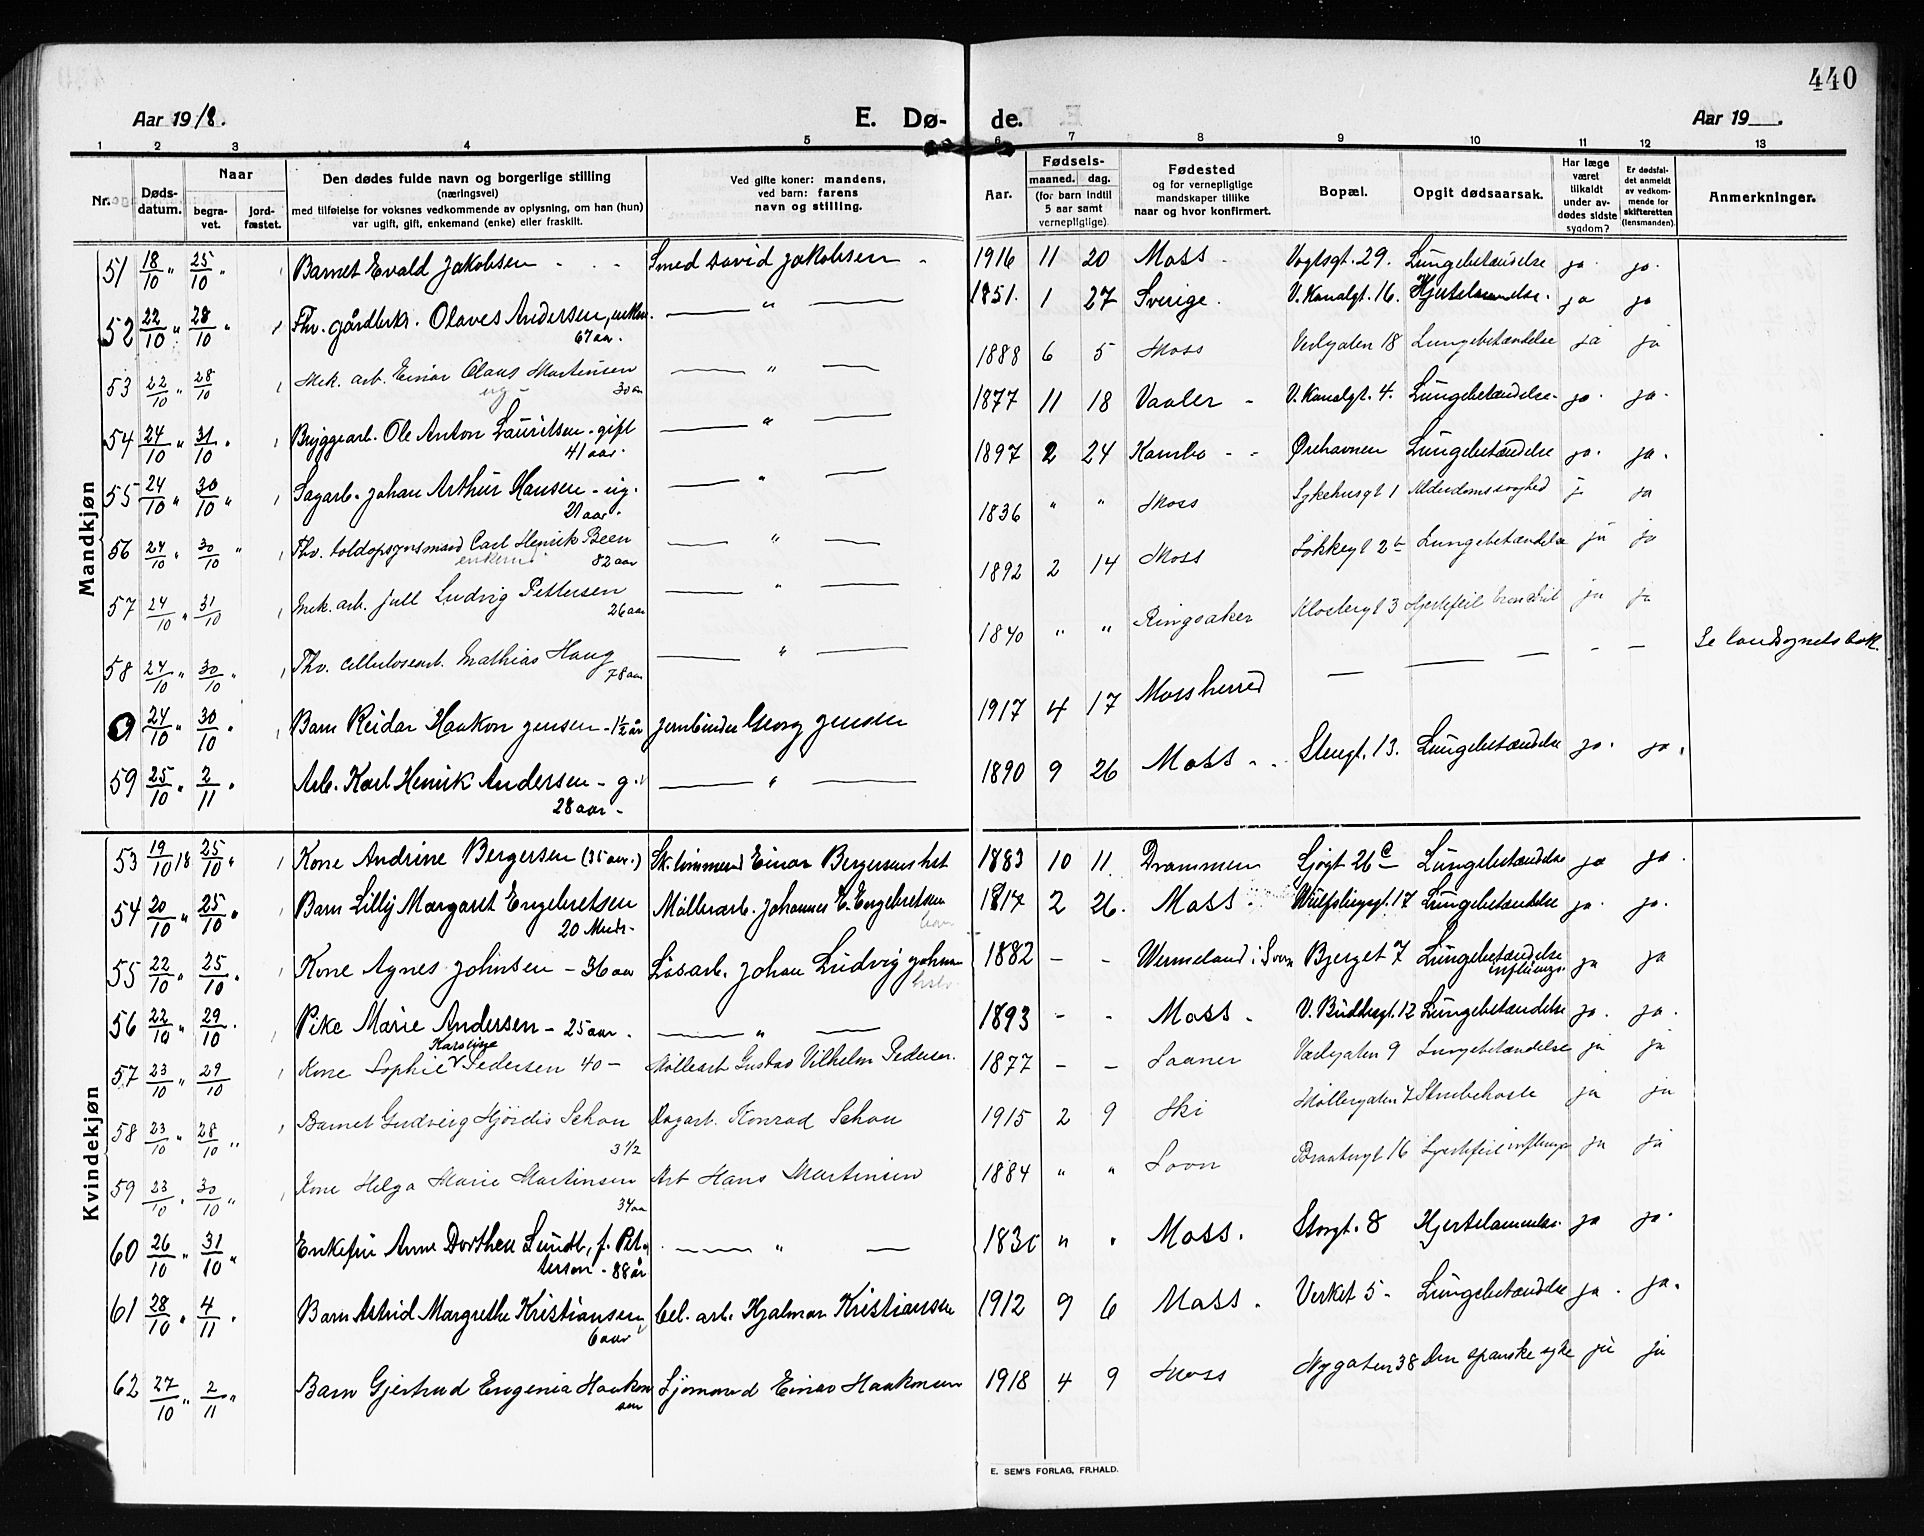 440
Aar 1918. E. Dø- de. Aar 19___.
1 2 3 4 5 6 7 8 9 10 11 12 13
Nr. Døds-datum. Naar begra-vet. jord-fæstet. Den dødes fulde navn og borgerlige stilling (næringsvei) med tilføielse for voksnes vedkommende av oplysning, om han (hun) var ugift, gift, enkemand (enke) eller fraskilt. Ved gifte koner: mandens, ved barn: farens navn og stilling. Aar. Fødsels- maaned. dag. (for barn indtil 5 aar samt vernepligtige) Fødested og for vernepligtige mandskaper tillike naar og hvor konfirmert. Bopæl. Opgit dødsaarsak. Har læge været tilkaldt under av-dødes sidste sygdom? Er dødsfal-det anmeldt av vedkom-mende for skifteretten (lensmanden). Anmerkninger.
Mandkjøn
51 18/10 " 25/10 " Barnet Evald Jakobsen - - - Smed David Jakobsen - 1916 11 20 Moss - Vogtsgt. 29. Lungebetændelse ja. ja.
52 22/10 " 28/10 " Fhv. gårdbrkr. Olaves Andersen, enkem. — " — 1851. 1 27 Sverige. V. Kanalgt. 16. Hjertelammelse. ja ja
67 aar.
53 22/10 " 28/10 Mek. arb. Einar Olaus Martinsen — " — 1888 6 5 Moss Verlegaten 18 Lungebetændelse ja ja
ug 30 aar
54 24/10 " 31/10 " Bryggearb. Ole Anton Lauritsen - gift — " — 1877 11 18 Vaaler - V. Kanalgt. 4. Lungebetændelse. ja. ja.
41 aar.
55 24/10 " 30/10 " Sagarb. Johan Arthur Hansen - ug. — " — 1897 2 24 Kambo - - Ørehavnen Lungebetændelse ja. ja.
21 aar.
56 24/10 " 30/10 " Fhv. toldopsynsmand Carl Henrik Been — " — 1836 " " Moss Sykehusgt 1 Alderdomssvaghed j ja
enkem 82 aar
57 24/10 " 31/10 Mek. arb. Jull Ludvig Pettersen — " — 1892 2 14 Moss Løkkegt 2b Lungebetændelse ja ja
26 aar
58 24/10 " 30/10 " Fhv. cellulosearb. Mathias Haug — " — 1840 " " Ringsaker Klostergt 3 Hjertefeil bronchit ja ja
78 aar
24/10 " 30/10 " Barn Reidar Haakon Jensen - 1½ år Jernbinder Georg Jensen 1917 4 17 Moss herred — — — - — Se landsognets bok.
59 25/10 " 2/11 " Arb. Karl Henrik Andersen - g. — " — 1890 9 26 Moss - - Stengt. 13. Lungebetændelse ja. ja.
28 aar -
Kvindekjøn
53 19/10 18 25/10 " Kone Andrine Bergersen (35 aar.) Sk.tømmerd Einar Bergersens hst 1883 10 11. Drammen Sjøgt 26 c Lungebetændelse ja ja.
54 20/10 " 25/10 " Barn Lilly Margaret Engebretsen Møllerarb. Johannes E. Engebretsen 1817 2 26. Moss. Wulfsbergsgt. 17 Lungebetændelse ja. ja.
20 Mndr. barn
55 22/10 " 25/10 " Kone Agnes Johnsen - 36 aar Løsarb. Johan Ludvig Johnsen 1882 - - Wermeland i Sverr Bjerget 7 Lungebetændelse ja ja
influenza.
56 22/10 " 29/10 . Pike Marie Andersen - 25 aar. — " — 1893 - - Moss - V. Buddesgt. 12 Lungebetændelse ja. ja.
Karoline
57 23/10 " 29/10 Kone Sophie Pedersen 40 - Møllearb Gustav Vilhelm Pedersen. 1877 - - Saaner Værlegaten 9 Lungebetændelse ja ja
58 23/10 " 28/10 " Barnet Gudveig Hjørdis Schou Dagarb. Konrad Schou 1915 2 9 Ski Møllergaten 7 Strubehoste ja ja
3 1/2
59 23/10 " 30/10 " Kone Helga Marie Martinsen Arb Hans Martinsen 1884 " " Soon Braatengt 16 Hjertefeil influenza ja ja
34 aar
60 26/10 " 31/10 " Enkefru Anne Dorthea Lundt, f. Pet- — " — 1830 " " Moss. Storgt. 8 Hjertelammelse. ja ja.
terson - 88 år
61 28/10 " 4/11 . Barn Astrid Margrethe Kristiansen Cel. arb. Hjalmar Kristiansen 1912 9 6 Moss. Verket 5 - Lungebetændelse ja. ja.
6 aar
62 27/10 " 2/11 " Barn Gjertrud Eugenia Haakon Sjømand Einar Haakonsen 1918 4 9 Moss Nygaten 38 Den spanske syke ja ja
sen
E. SEM'S FORLAG, FR.HALD.